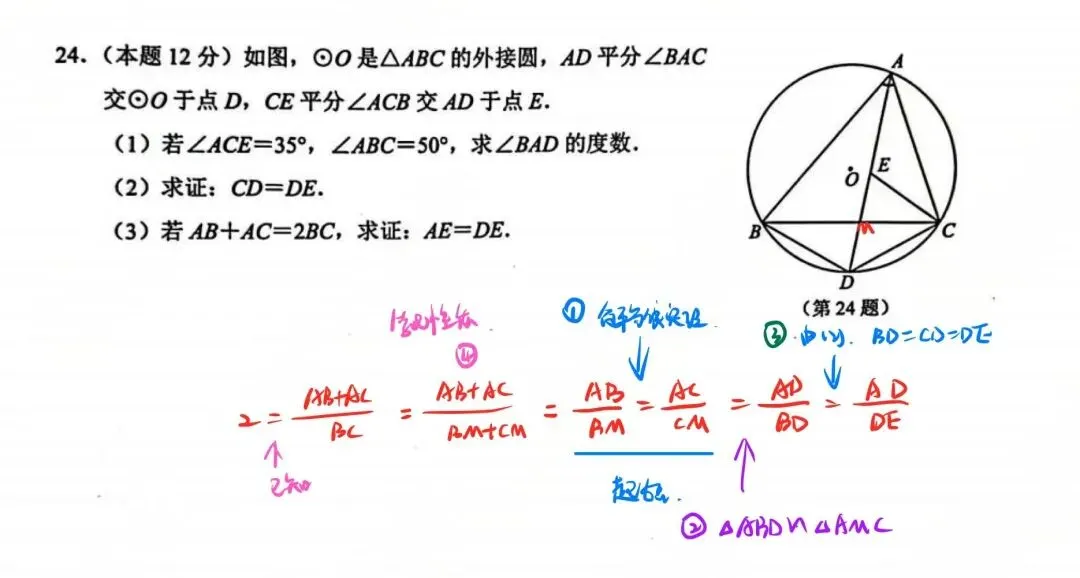 24.(本题12分)如图,⊙O是△ABC的外接圆,AD平分∠BAC
交⊙O于点D,CE平分∠ACB交AD于点E.
(1)若∠ACE=35°,∠ABC=50°,求∠BAD的度数.
(2)求证:CD=DE.
(3)若AB+AC=2BC,求证:AE=DE.
A
E
O
B
M
C
D
(第24题)
④
① 角平分线定理
③ 由(2). BD=CD=DE
2 = AB+AC/BC = AB+AC/BM+CM = AB/BM = AC/CM = AD/BD = AD/DE
已知
② △ABD∽△AMC